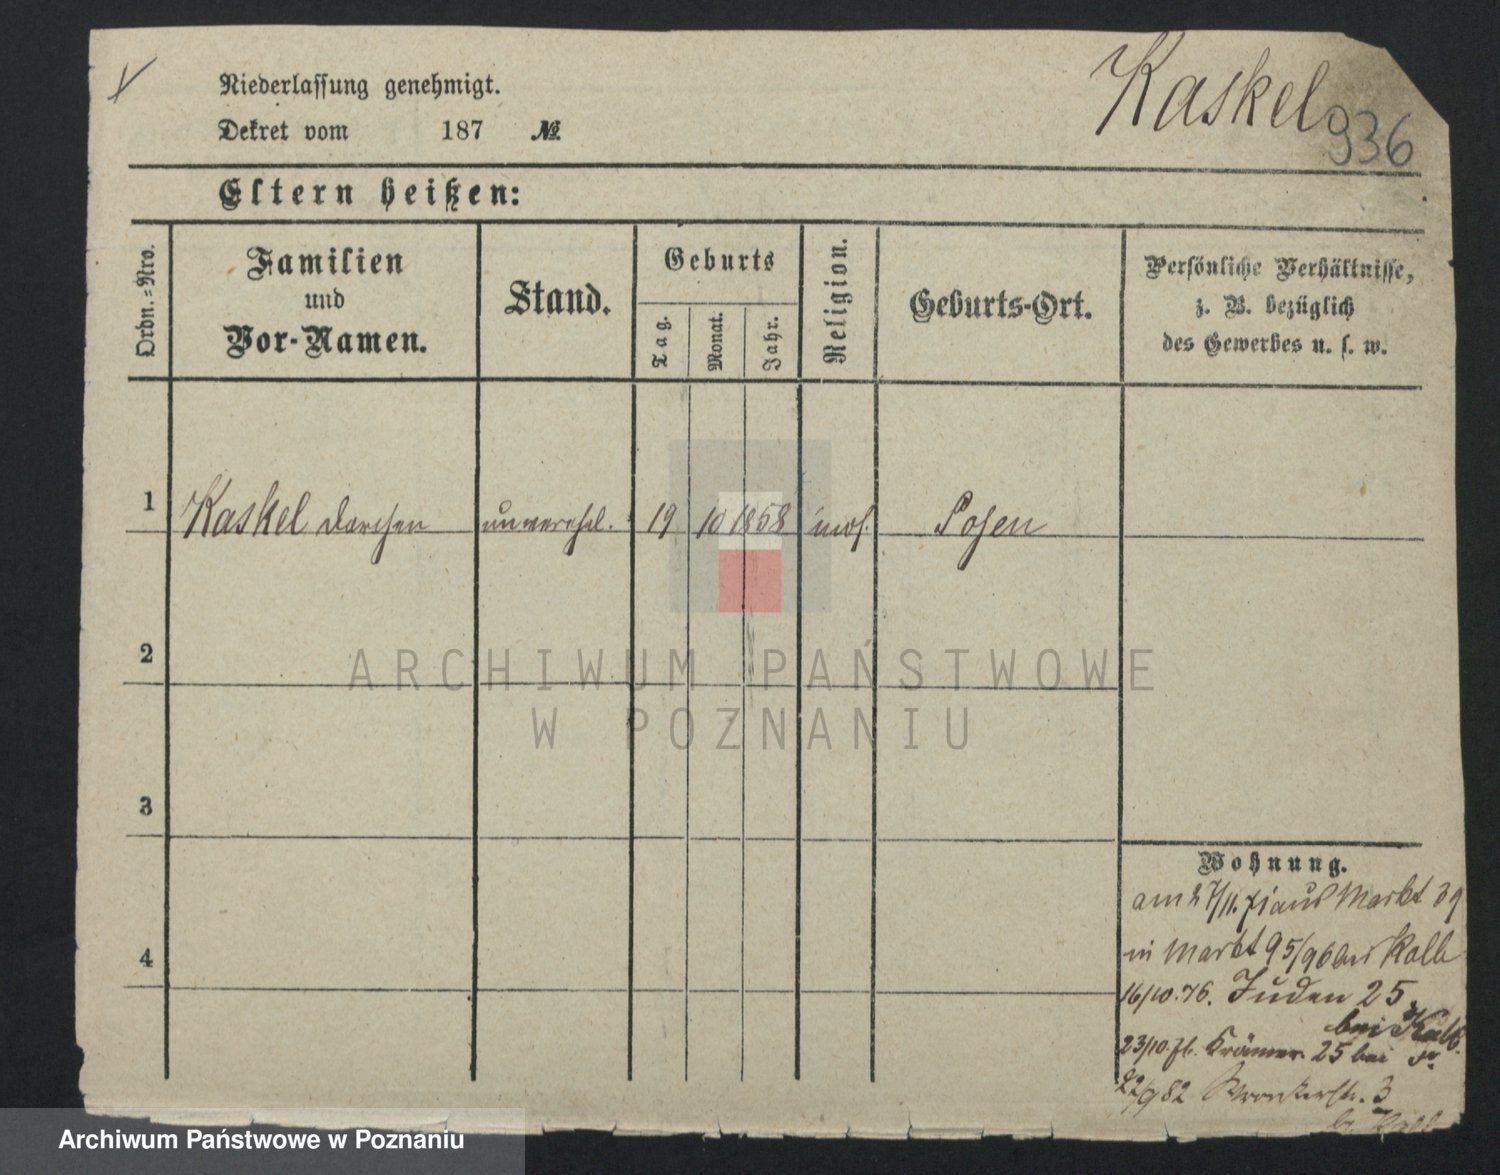 Niederlassung genehmigt.
Kaskel
Dekret vom 187 №
936
Eltern heißen:
Ordn.=Nro.
Familien
und
Vor-Namen.
Stand.
Geburts
Tag.
Monat.
Jahr.
Religion.
Geburts-Ort.
Persönliche Verhältnisse,
z. B. bezüglich
des Gewerbes u. s. w.
1 Kaskel Dorchen unverehel. 19 10 1858 mos. Posen
2
3
4
Wohnung.
am 27/11. 71 aus Markt 39
in Markt 95/96 bei Kalb
16/10.76. Juden 25
bei Kalb.
23/10. Krämer. 25 bei
22/9 82 Wronkerstr. 3
b. Kalb
ARCHIWUM PAŃSTWOWE
W POZNANIU
Archiwum Państwowe w Poznaniu